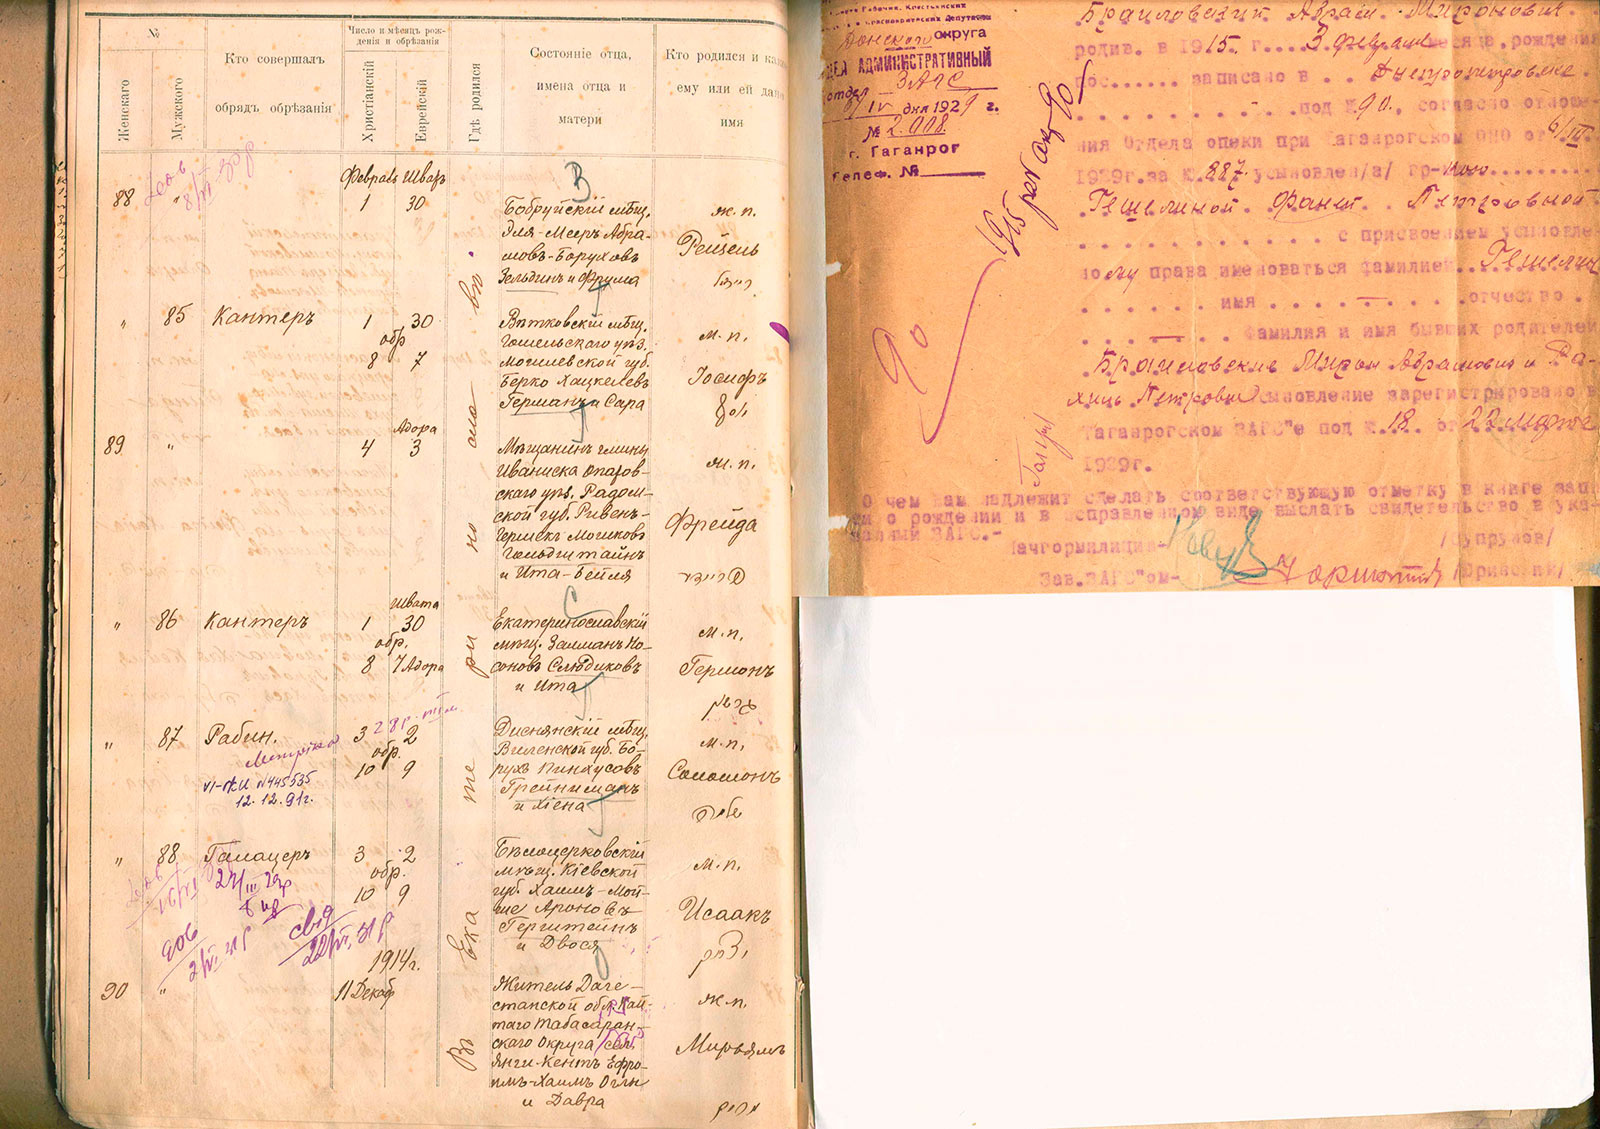 №
Женскаго
Мужского
Кто совершалъ
обрядъ обрѣзанія
Число и мѣсяцъ рож-
денія и обрѣзанія
Христіанскій
Еврейскій
Гдѣ родился
Состояніе отца,
имена отца и
матери
Кто родился и како
ему или ей дано
имя
Февраль Шватъ
88 " 1 30
Бобруйскій мѣщ.
Эля-Мееръ Абра-
мовъ-Боруховъ
Зельдинъ и Фрума
ж.п.
Рейзель
" 85 Канторъ 1 30
обр.
8 7
Вѣтковскій мѣщ.
Гомельскаго уѣз.
Могилевской губ.
Берко Хацкелевъ
Германъ и Сара
м.п.
Іосифъ
Адора
89 " 4 3
Мѣщанинъ гмины
Иваниска Опатов-
скаго уѣз. Радом-
ской губ. Рувенъ-
Гершекъ Мошковъ
Гольдштайнъ
и Ита-Бейля
ж.п.
Фрейда
Швата
" 86 Канторъ 1 30
обр.
8 7 Адора
Екатеринославскій
мѣщ. Залманъ Но-
соновъ Слюдиковъ
и Ита
м.п.
Германъ
" 87 Рабин. 3 2
обр.
10 9
Метрика
VI-ЖИ №445535
12.12.91г.
Диснянскій мѣщ.
Виленской губ. Бо-
рухъ Пинхусовъ
Грейниманъ
и Хіена
м.п.
Соломонъ
" 88 Галацеръ 3 2
обр.
10 9
Бѣлоцерковскій
мѣщ. Кіевской
губ. Хаимъ-Мой-
ше Ароновъ
Герштейнъ
и Двося
м.п.
Исаакъ
1914 г.
90 " 11 Декаб
Житель Даге-
станской обл. Кай-
таго Табасаран-
скаго Округа сел.
Янги-Кентъ Ефро-
имъ-Хаимъ Оглы
и Давра
ж.п.
Мировямъ
Въ Екатеринославѣ
Рабочих, Крестьянских
и Красноармейских Депутатов
Донского округа
АДМИНИСТРАТИВНЫЙ
отдел ЗАГС
IV дня 1929 г.
№ 2.008.
г. Таганрог
Телеф. №
1915 раввинат 90
90
Браиловский Абрам Миронович
родив. в 1915. г....3. февраля месяца, рождения
записано в . . Днепропетровске
под № 90., согласно отноше-
ния Отдела опеки при Таганрогском ОНО от 6/III
1929г. за № 887. усыновлен/а/ гр-кою
Гешелиной Фаней Петровной
с присвоением усыновле-
ному права именоваться фамилией..Гешелин
имя . . . . — . . . .отчество .
. . — . . . Фамилия и имя бывших родителей
Браиловские Мирон Абрамович и Ра-
хиль Петровна Усыновление зарегистрировано в
Таганрогском ЗАГС"е под № 18. от 22 марта
1929г.
О чем вам надлежит сделать соответствующую отметку в книге запи
си о рождении и в исправленном виде выслать свидетельство в ука-
занный ЗАГС.-
Начгормилиции- /Супрунов/
Зав.ЗАГС"ом-